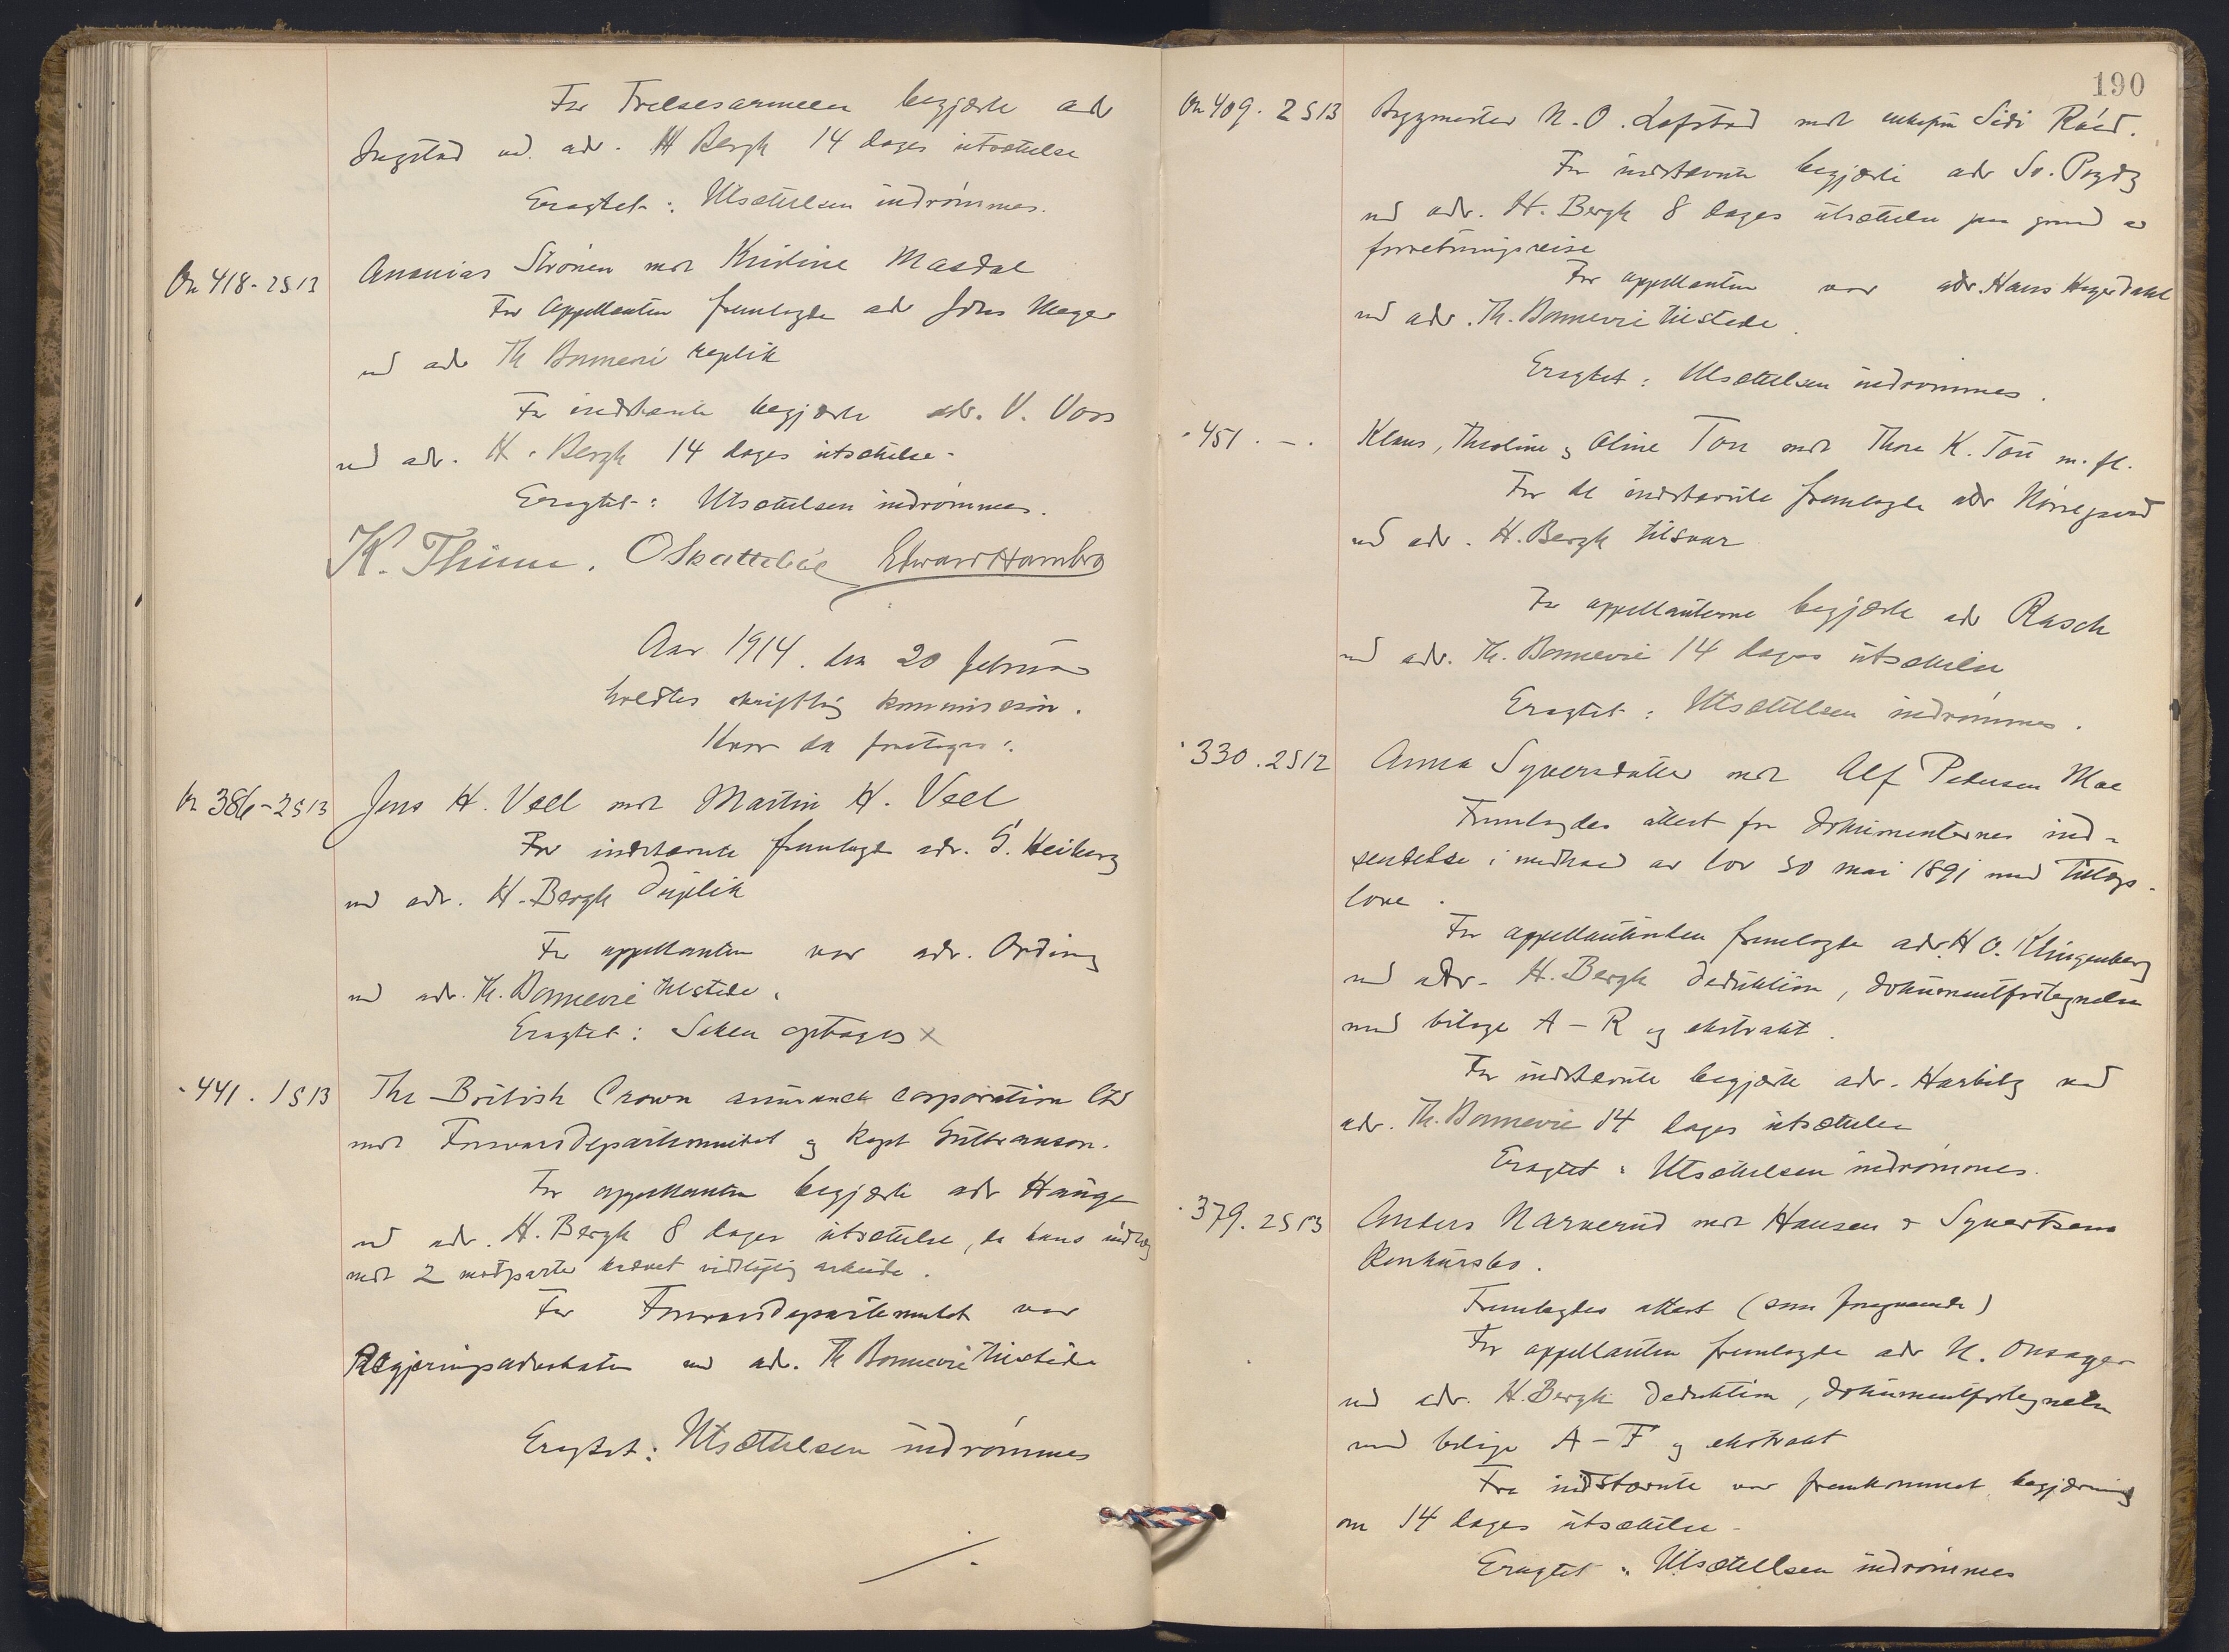 For Frelsesarmeen begjærte adv
Ingstad ved adv. H Bergh 14 dages utsættelse
Eragtet: Utsættelsen indrømmes.
On 418-2S13
Ananias Strønen mot Kristine Masdal
For Appellanten fremlagde adv Johs Meyer
ved adv Th Bonnevie replik
For indstævnte begjærte adv. V. Voss
ved adv. H. Bergh 14 dages utsættelse.
Eragtet: Utsættelsen indrømmes.
K. Thinn. O Skattebøl Edward Hambro
Aar 1914. den 20 februar
holdtes skriftlig kommission.
Hvor da foretoges:
On 386-2S13
Jens H. Veel mot Martin H. Veel
For indstævnte fremlagde adv. G. Heiberg
ved adv. H. Bergh Duplik
For appellanten var adv. Ording
ved adv. Th. Bonnevie tilstede.
Eragtet: Saken optages x
- 441. 1S13
The British Crown assurance corporation Ltd
mot Forsvarsdepartementet og Kapt Guttormson.
For appellanten begjærte adv Hauge
ved adv. H. Bergh 8 dages utsættelse, da hans indlæg
mot 2 motparter krævet vidløftig arbeide.
For Forsvarsdepartementet var
Regjeringsadvokaten ved adv. Th Bonnevie tilstede
Eragtet: Utsættelsen indrømmes
./.
190
On 409. 2S13
Byggmester N. O. Lofstad mot enkefru Sidi Rød.
For indstævnte begjærte adv Sv.
ved adv. H. Bergh 8 dages utsættelse paa grund av
forretningsreise
For appellanten var adv. Hans Heyerdahl
ved adv. Th. Bonnevie tilstede.
Eragtet: Utsættelsen indrømmes.
- 451. -.
Klaus, Theoline & Oline Torr mot Thore K. Torr m. fl.
For de indstævnte fremlagde adv Nørregaard
ved adv. H. Bergh tilsvar
For appellanterne begjærte adv Rasch
ved adv. Th. Bonnevie 14 dages utsættelse
Eragtet: Utsættelsen indrømmes.
- 330. 2S12
Anna Syversdatter mot Alf Pedersen Moe
Fremlagdes attest for dokumenternes ind-
sendelse i medhold av lov 30 mai 1891 med tillægs-
love.
For appellantinden fremlagde adv. H O. Klingenberg
ved adv. H. Bergh Deduktion, dokumentfortegnelse
med bilage A-R og ekstrakt.
For indstævnte begjærte adv. Harbitz ved
adv. Th. Bonnevie 14 dages utsættelse
Eragtet: Utsættelsen indrømmes.
- 379. 2S13
Anders Narverud mot Hansen & Syvertsens
Konkursbo.
Fremlagdes attest (som foregaaende)
For appellanten fremlagde adv N. Onsager
ved adv. H. Bergh Deduktion, dokumentfortegnelse
med bilage A-F og ekstrakt
Fra indstævnte var fremkommet begjæring
om 14 dages utsættelse.
Eragtet: Utsættelsen indrømmes